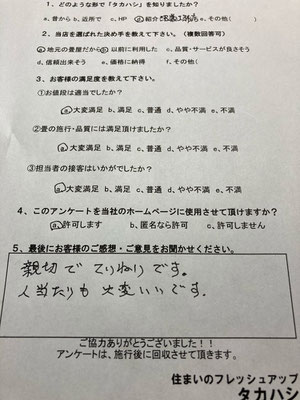 1、どのような形で「タカハシ」を知りましたか?
a、昔から b、近所で c、HP d、紹介 e、その他( )
2、当店を選ばれた決め手を教えて下さい。(複数回答可)
a、地元の畳屋だから b、以前に利用した c、品質・サービスが良さそう
d、信頼出来そう e、価格に納得 f、その他( )
3、お客様の満足度を教えて下さい。
①お値段は適当でしたか?
a、大変満足 b、満足 c、普通 d、やや不満 e、不満
②畳の施行・品質には満足頂けましたか?
a、大変満足 b、満足 c、普通 d、やや不満 e、不満
③担当者の接客はいかがでしたか?
a、大変満足 b、満足 c、普通 d、やや不満 e、不満
4、このアンケートを当社のホームページに使用させて頂けますか?
a、許可します b、匿名なら許可 c、許可しません
5、最後にお客様のご感想・ご意見をお聞かせください。
親切でていねいです。
人当たりも大変いいです。
ご協力ありがとうございました!!
アンケートは、施行後に回収させて頂きます。
住まいのフレッシュアップ
タカハシ